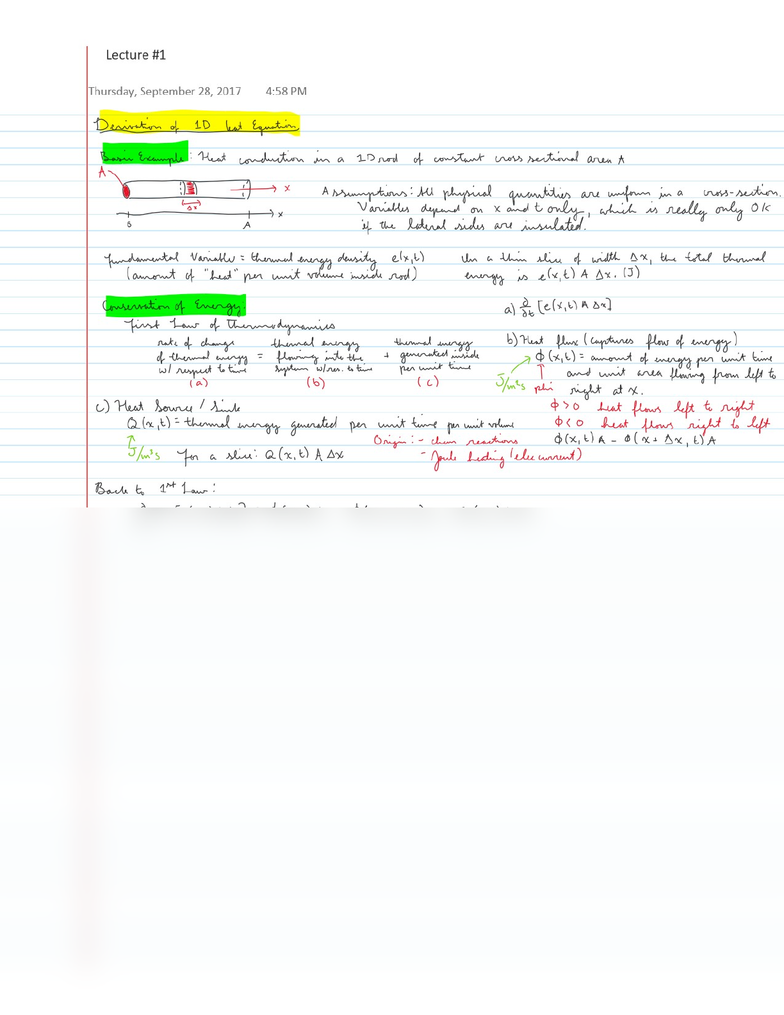 Lecture #1
Thursday, September 28, 2017 4:58 PM
Derivation of 1D heat Equation
Basic Example: Heat conduction in a 1D rod of constant cross sectional area A
A
x
Δx
x
A
Assumptions: All physical quantities are uniform in a cross-section.
Variables depend on x and t only, which is really only OK
if the lateral sides are insulated.
Fundamental Variable = thermal energy density e(x,t)
(amount of "heat" per unit volume inside rod)
In a thin slice of width Δx, the total thermal
energy is e(x,t) A Δx. (J)
Conservation of Energy.
First Law of Thermodynamics
rate of change
of thermal energy
w/ respect to time
(a)
=
thermal energy
flowing into the
system w/res. to time
(b)
+
thermal energy
generated inside
per unit time
(c)
a) ∂/∂t [e(x,t) A Δx]
b) Heat flux (captures flow of energy)
ϕ(x,t) = amount of energy per unit time
and unit area flowing from left to
right at x.
J/m²s phi
ϕ>0 heat flows left to right
ϕ<0 heat flows right to left
ϕ(x,t)A - ϕ(x+Δx,t)A
c) Heat Source / Sink
Q(x,t) = thermal energy generated per unit time per unit volume
J/m³s For a slice: Q(x,t) A Δx
Origin: - chem reactions
- Joule heating (elec current)
Back to 1st Law: